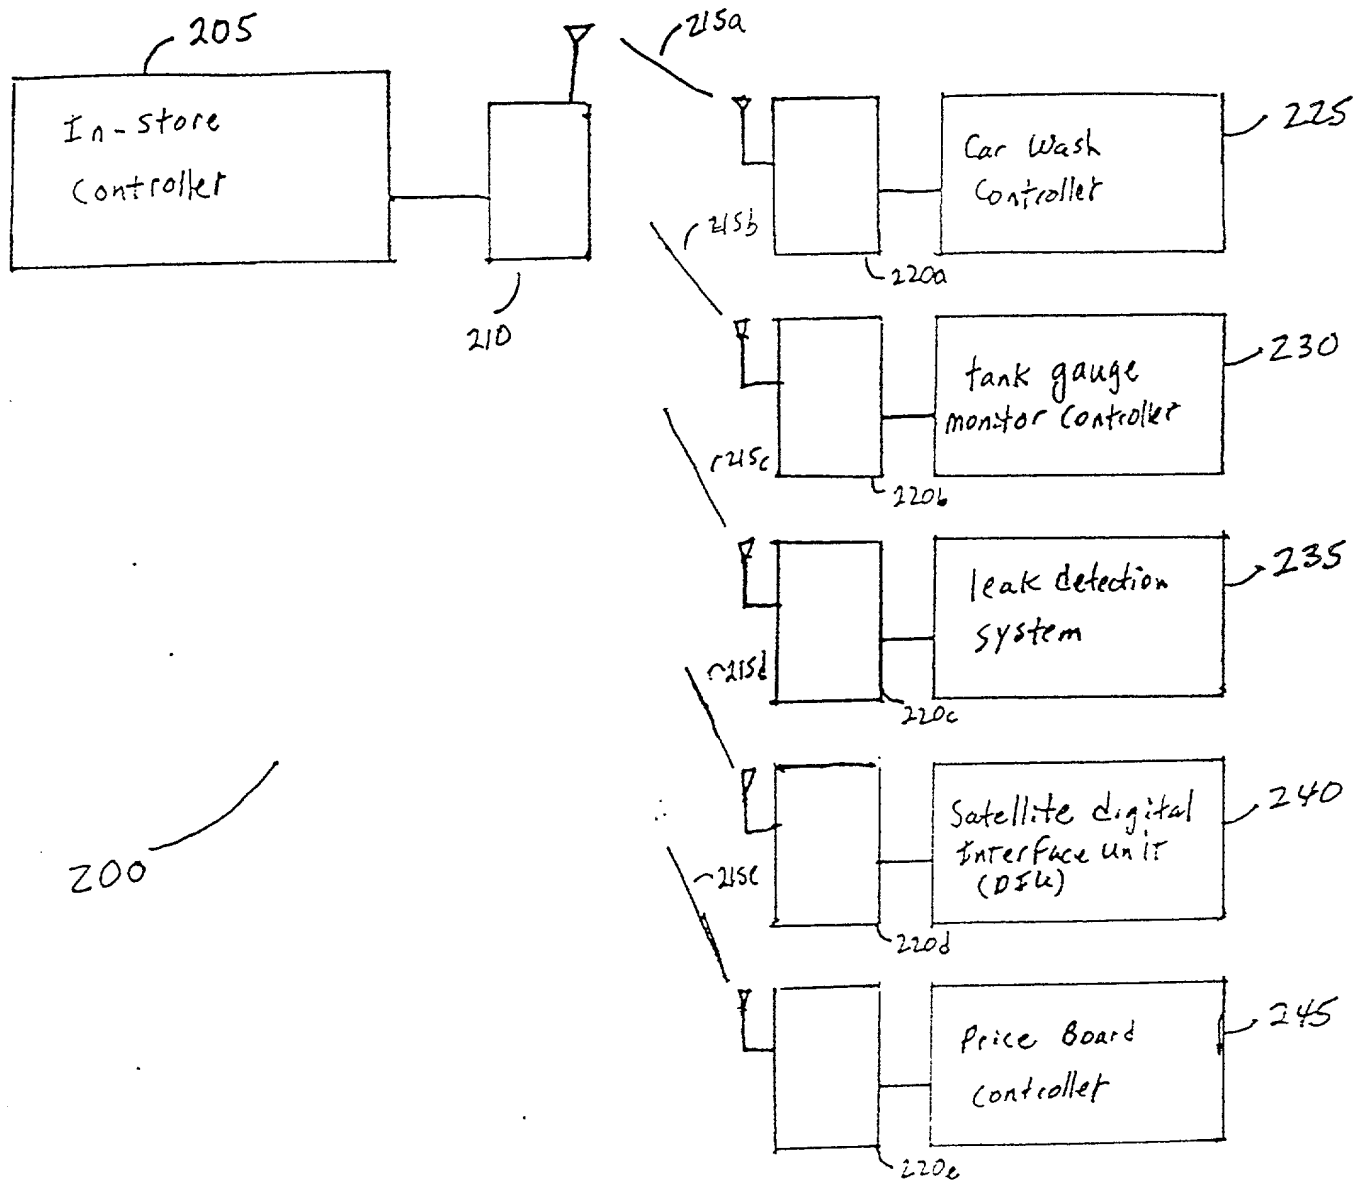 205
In-store
Controller
210
215a
Car Wash
Controller
225
220a
215b
tank gauge
monitor controller
230
220b
215c
leak detection
system
235
220c
215d
Satellite digital
Interface unit
(DIU)
240
220d
215e
Price Board
Controller
245
220e
200